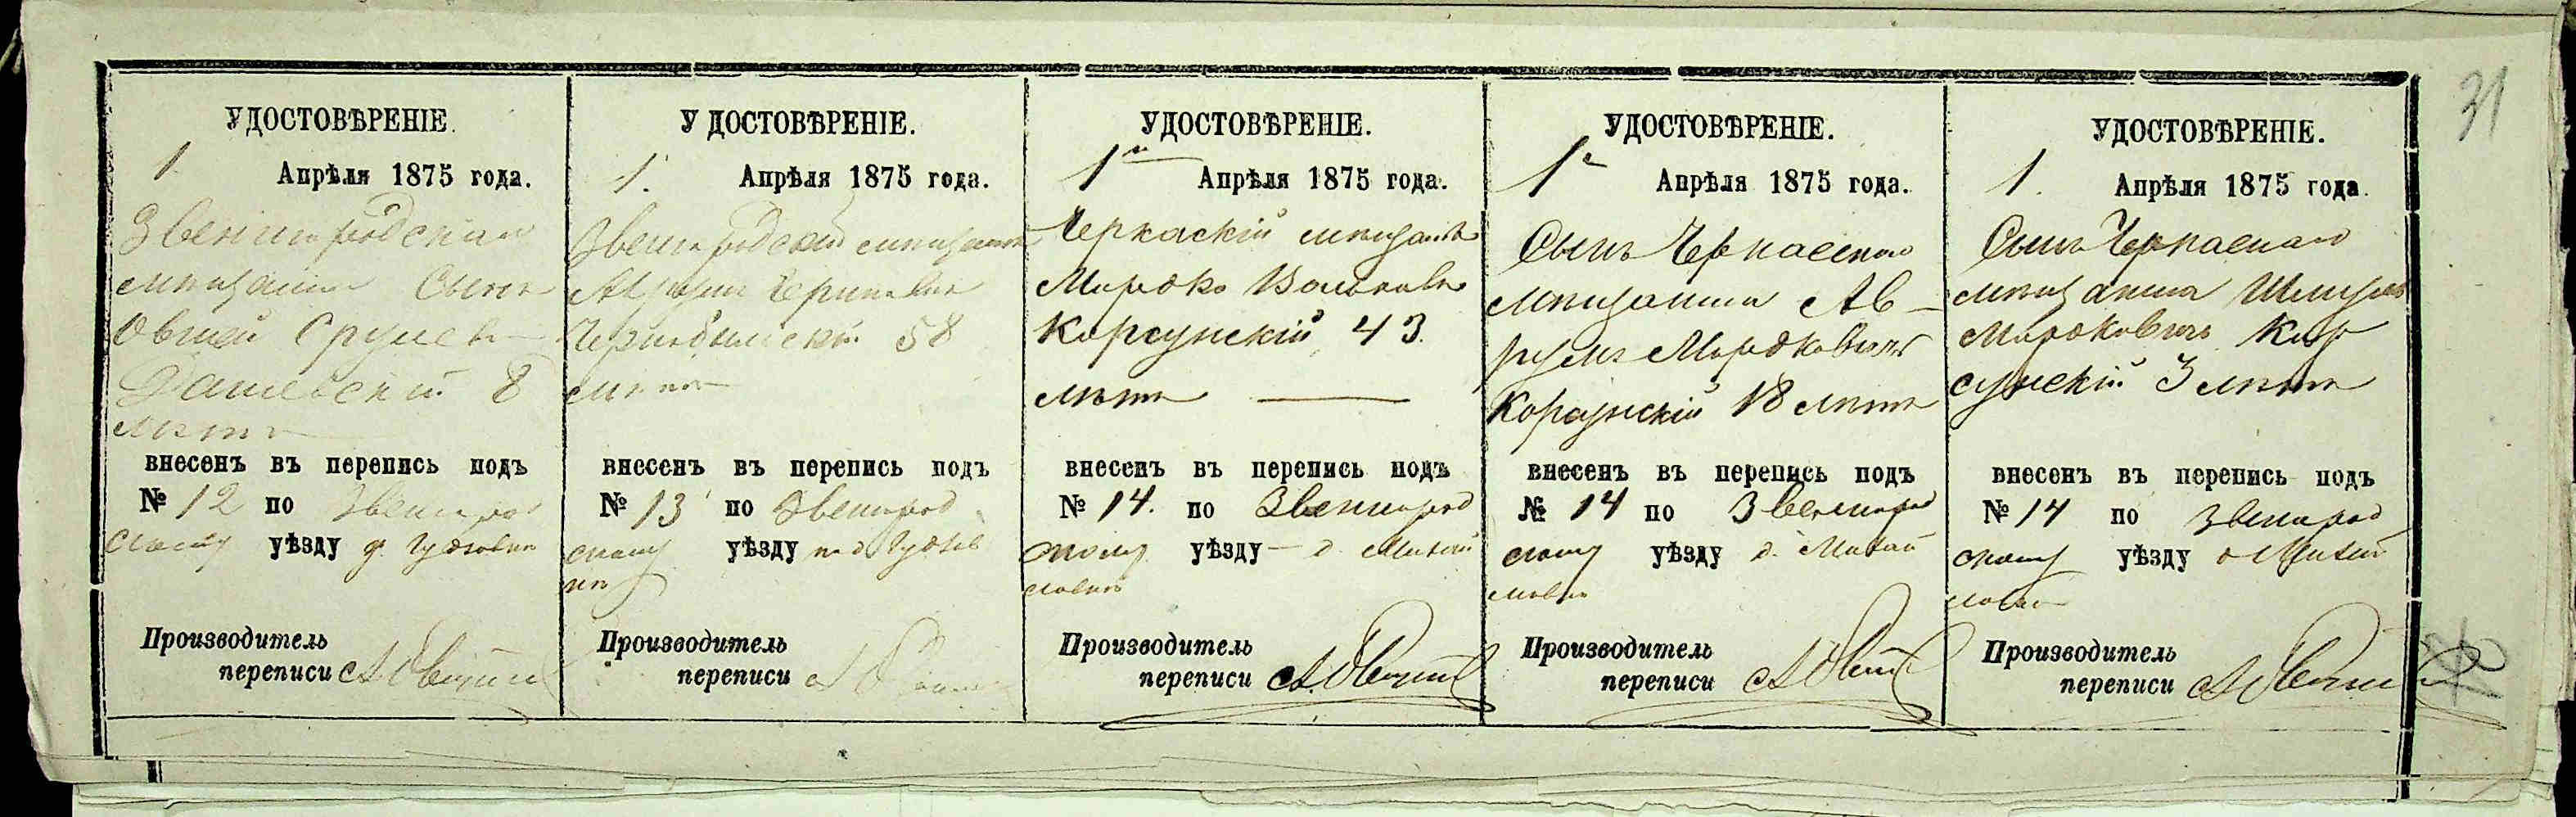 31
УДОСТОВѢРЕНІЕ.
1 Апрѣля 1875 года.
Звенигородскій
мѣщанинъ Сынъ
Овшей Сруль
Дашевскій 8
лѣтъ
внесенъ въ перепись подъ
№ 12 по Звенигород
скому уѣзду д.
Производитель
переписи
УДОСТОВѢРЕНІЕ.
1. Апрѣля 1875 года.
Звенигородскій мѣщанинъ
Чернобыльскій 58
лѣтъ
внесенъ въ перепись подъ
№ 13 по Звенигород
скому уѣзду
Производитель
переписи
УДОСТОВѢРЕНІЕ.
1го Апрѣля 1875 года.
Черкаскій мѣщанинъ
Мордко Вольковъ
Корсунскій 43
лѣтъ
внесенъ въ перепись подъ
№ 14. по Звенигород
скому уѣзду – д.
Производитель
переписи
УДОСТОВѢРЕНІЕ.
1го Апрѣля 1875 года.
Сынъ Черкаскаго
мѣщанина Ав-
румъ Мордковичъ
Корсунскій 18 лѣтъ
внесенъ въ перепись подъ
№ 14 по Звенигород
скому уѣзду д.
Производитель
переписи
УДОСТОВѢРЕНІЕ.
1. Апрѣля 1875 года.
Сынъ Черкаскаго
мѣщанина Шмуль
Мордковичъ Кор
сунскій 3 лѣтъ
внесенъ въ перепись подъ
№ 14 по Звенигород
скому уѣзду
Производитель
переписи